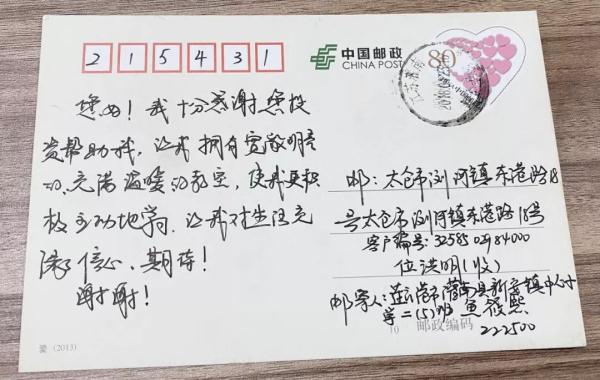 215431
中国邮政
CHINA POST
80
您好！我十分感谢您投
资帮助我，让我拥有宽敞明亮
的、充满温暖的教室，使我更积
极主动地学习。让我对生活充
满了信心、期待！
谢谢！
邮：太仓市浏河镇东港路18
号太仓市浏河镇东港路18号
客户编号：32585021184000
位洪明（收）
邮寄人：连云港市灌南县新安镇中心小
学二（5）班
邮政编码
222500
爱 (2013)